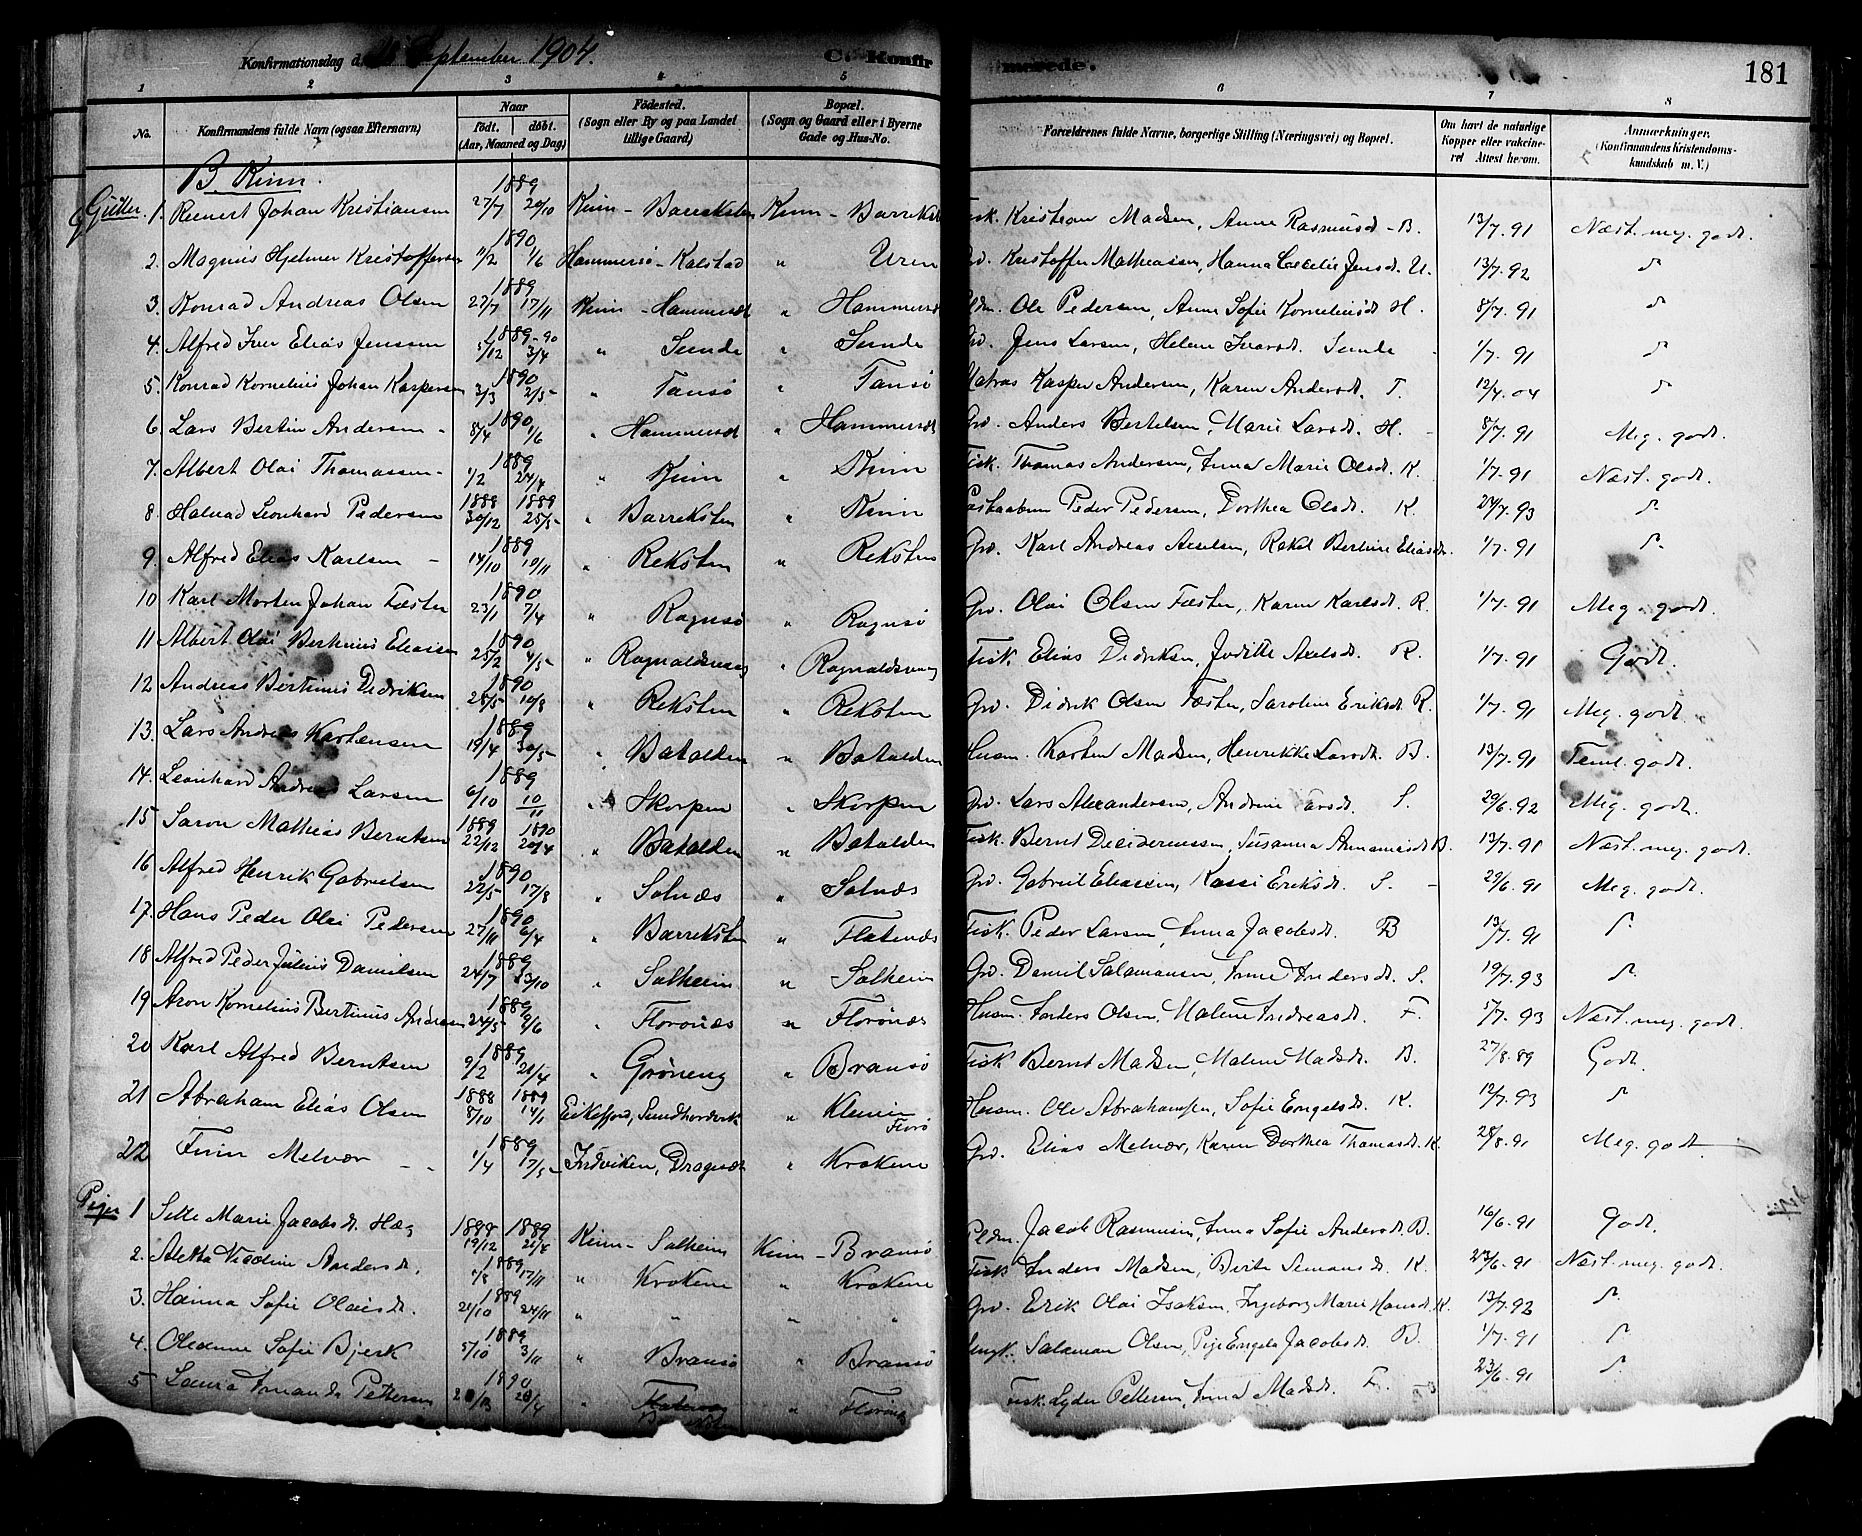 Konfirmationsdag d. September 1904. C. Konfir merede. 181
1 2 3 4 5 6 7 8
No. Konfirmandens fulde Navn (ogsaa Efternavn) Naar født. døbt. (Aar, Maaned og Dag) Fødested. (Sogn eller By og paa Landet tillige Gaard) Bopæl. (Sogn og Gaard eller i Byerne Gade og Hus-No. Forældrenes fulde Navne, borgerlige Stilling (Næringsvei) og Bopæl. Om havt de naturlige Kopper eller vakcineret Attest herom. Anmærkninger. (Konfirmandens Kristendomskundskab m. V.)
B. Kinn.
Gutter. 1. Reinert Johan Kristiansen 1889 27/7 20/10 Kinn - Barreksten Kinn - Barrekst Fisk. Kristian Madsen, Anne Rasmusd. B. 13/7. 91 Næst. meg. godt.
2. Magnus Hjelmer Kristoffersen 1890 11/2 1/6 Hammersø - Kalstad " Uren Grd. Kristoffer Matheassen, Hanna Cecelie Jensd. U. 13/7. 92 do
3. Konrad Andreas Olsen 1889 27/7 17/11 Kinn - Hammersdt " Hammersdt Ole Pedersen, Anne Sofie Korneliusd. H. 8/7. 91 do
4. Alfred Iver Elias Jenssen 1889-90 5/12 3/4 " Sunde " Sunde Grd. Jens Larsen, Helene Ivarsd. Sunde 1/7. 91 do
5. Konrad Kornelius Johan Kaspersen 1890 3/3 2/5 " Tansø " Tansø Matros Kasper Andersen, Karen Andersd. T. 12/4. 04 do
6. Lars Bertin Andersen - 1890 8/4 1/6 " Hammersdt " Hammersdt Grd. Anders Bertelsen, Marie Larsd. H. - 8/7. 91 Meg. godt.
7. Albert Olai Thomassen - 1889 1/2 24/4 " Kinn " Kinn Fisk. Thomas Andersen, Anna Marie Olsd. K. 1/7. 91 Næst. godt.
8. Halvad Leonhard Pedersen 1888 1889 30/12 25/5 " Barreksten " Kinn Peder Pedersen, Dorthea Olsd. K. 24/7. 93 do
9. Alfred Elias Karlsen - 1889 14/10 10/11 " Reksten " Reksten Grd. Karl Andreas Axelsen, Rakel Bertine Eliasd. 1/7. 91 do
10 Karl Morten Johan Fæster 1890 23/1 7/4 " Ragnsø " Ragnsø Grd. Olai Olsen Fæster, Karen Karlsd. R. 1/7. 91 Meg. godt.
11 Albert Olai Bertinus Eliassen 1890 25/2 4/5 " Ragnaldsvaag " Ragnaldsvaag Fisk. Elias Didriksen, Judithe Axelsd. R. 1/7. 91 Godt.
12 Andreas Bertinus Didriksen 1890 26/5 10/8 " Reksten " Reksten Grd. Didrik Olsen Fæster, Caroline Eriksd. R. 1/7. 91 Meg. godt.
13. Lars Andreas Karstensen 1889 19/4 30/5 " Batalden " Batalden Husm. Karsten Madsen, Henrikke Larsd. B. 13/7. 91 Teml. godt.
14. Leonhard Andreas Larsen 1889 6/10 10/11 " Skorpen " Skorpen Grd. Lars Alexandersen, Andrine Larsd. S. 29/6. 92 Meg. godt.
15 Saron Mathias Berntsen 1889 1890 22/12 20/4 " Batalden " Batalden Fisk. Bernt Decideriussen, Susanna Annanias B. 13/7. 91 Næst. meg. godt.
16 Alfred Henrik Gabrielsen 1890 22/5 17/8 " Solnæs " Solnæs Grd. Gabriel Eliassen, Kassi Eriksd. S. - 29/6. 91 Meg. godt.
17. Hans Peder Olai Pedersen 1890 27/11 6/4 " Barreksten " Flatenæs Fisk. Peder Larsen, Anna Jacobsd. B 13/7. 91 do
18 Alfred Peder Julius Danielsen 1889 24/7 13/10 " Solheim " Solheim Grd. Daniel Salamonsen, Anne Andersd. S. 19/7. 93 do
19 Aron Kornelius Bertinus Andersen 1889 24/5 9/6 " Florønæs " Florønæs Husm. Anders Olsen, Malene Andreasd. F. 5/7. 93 Næst. meg. godt.
20 Karl Alfred Berntsen 1889 9/2 21/4 " Grøneng " Bransø Fisk Bernt Madsen, Malene Madsd. B. 27/8. 89 Godt.
21 Abraham Elias Olsen 1888 1889 8/10 14/1 Eikefjord, Sundhordvik " Klevin Florø Husm. Ole Abrahamsen, Sofie Engelsd. K. 12/7. 93 do
22 Finn Melvær - - 1889 1/4 17/5 Indviken, Dragesæt " Krokene Grd. Elias Melvær, Karen Dorthea Thomasd. K. 28/8. 91 Meg. godt
Piger 1 Sille Marie Jacobsd. Hæg 1888 1889 19/12 21/4 Kinn - Solheim Kinn - Bransø Jacob Rasmusen, Anna Sofie Andersd. B. 16/6. 91 Godt.
2. Aletta Nicoline Andersd. 1889 1/8 17/11 " Krokene " Krokene Fisk Anders Madsen, Birte Simonsd. K. 23/6. 91 Næst. meg. godt.
3. Hanna Sofie Olaisd. 1889 21/10 24/11 " " " " Grd. Erik Olai Isaksen, Ingeborg Marie Hansd. K. 13/7. 92 do
4. Oleanne Sofie Bjerk 1889 5/10 3/11 " Bransø " Bransø Ungk. Salamon Olsen, Pige Engels Jacobsd. B. 1/7. 91 do
5 Lovisa Amanda Pettersen 1890 20/4 " " Florønæs Fisk. Lyder Pettersen, Anna Madsd. F. 23/6. 91 do